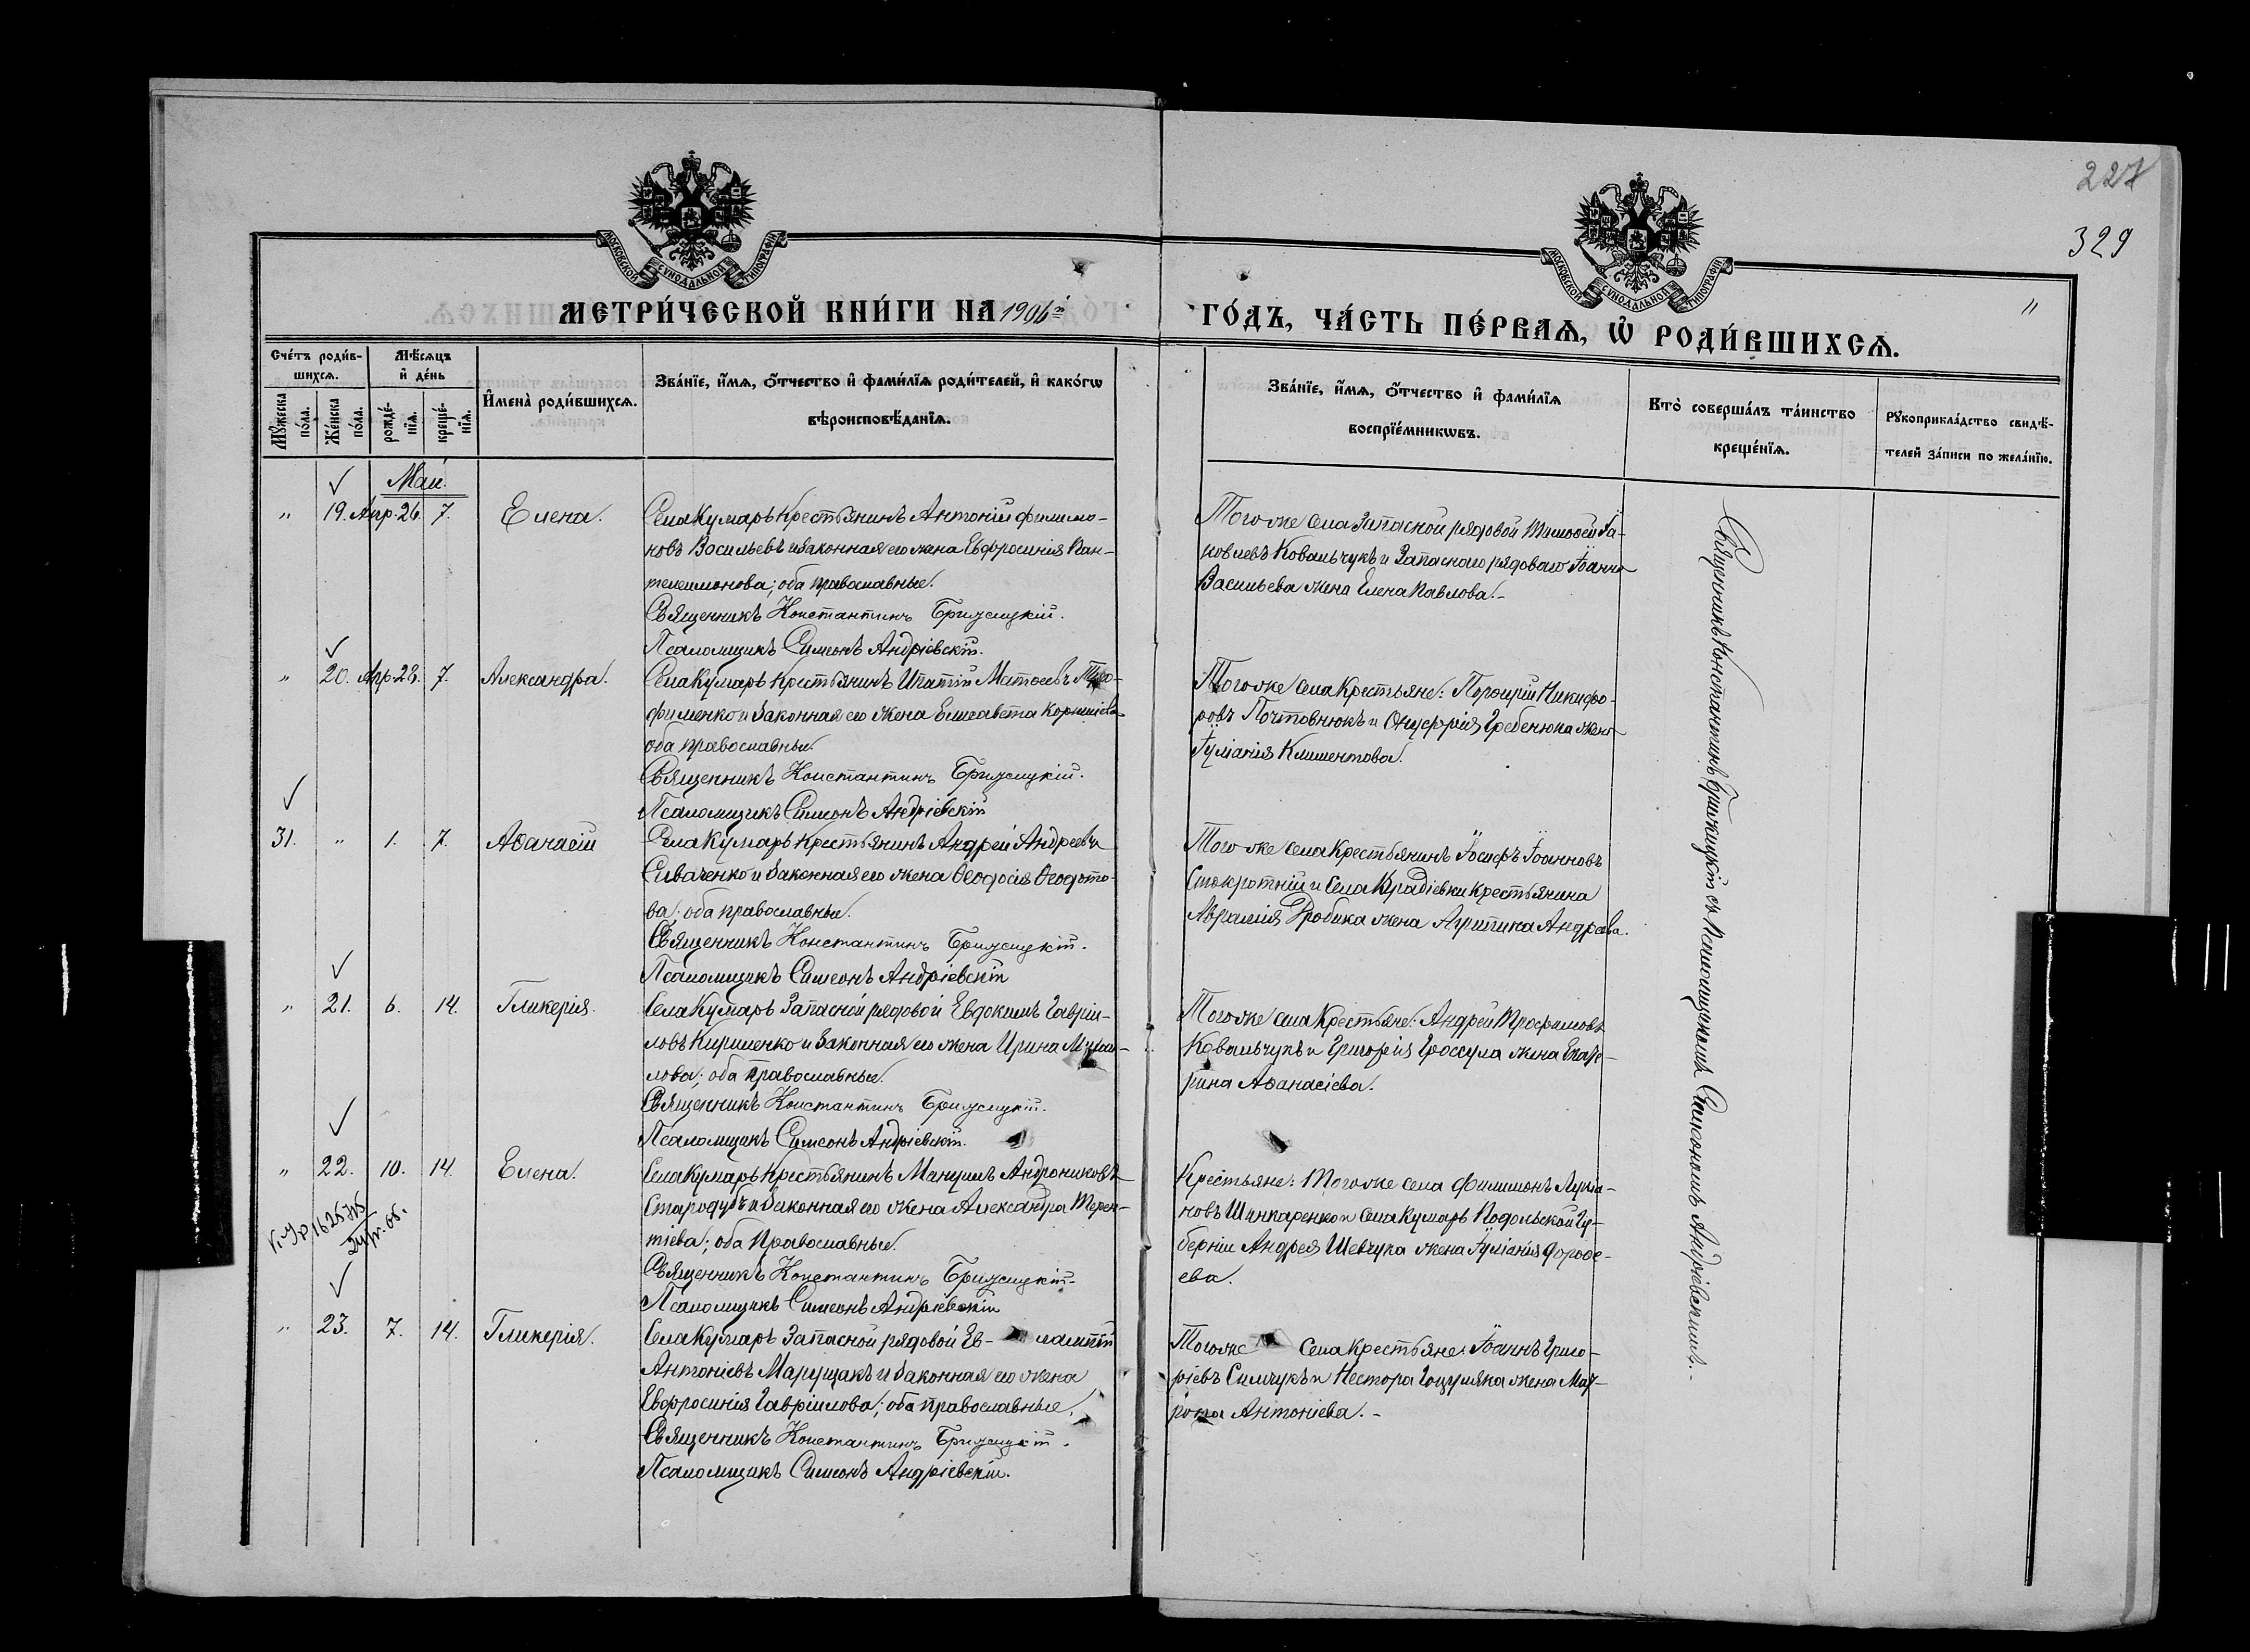 227
329
МОСКОВСКОЙ СѴНОДАЛЬНОЙ ТИПОГРАФІИ
МОСКОВСКОЙ СѴНОДАЛЬНОЙ ТИПОГРАФІИ
МЕТРИ́ЧЕСКОЙ КНИ́ГИ НА 1906й
ГО́ДЪ, ЧА́СТЬ ПЕ́РВАЯ, Ѡ҆ РОДИ́ВШИХСѦ.
"
Сче́тъ роди́в-
шихсѧ.
Мꙋ́жеска по́ла.
Же́нска по́ла.
Мѣ́сѧцъ
и҆ де́нь
рожде́-
нїѧ.
креще́-
нїѧ.
И҆мена̀ роди́вшихсѧ.
Зва́нїе, и҆́мѧ, ѻ҆́тчество и҆ фами́лїѧ роди́телей, и҆ како́гѡ
вѣроисповѣ́данїѧ.
Зва́нїе, и҆́мѧ, ѻ҆́тчество и҆ фами́лїѧ
воспрїе́мникѡвъ.
Кто̀ соверша́лъ та́инство
креще́нїѧ.
Рꙋкоприкла́дство свидѣ́-
телей за́писи по жела́нїю.
Май.
" 19. Апр. 26. 7. Елена.
Села Кумаръ крестьянинъ Антоній Филимо-
новъ Васильевъ и законная его жена Евфросинія Пан-
телеимонова; оба православные.
Священникъ Константинъ
Псаломщикъ Симеонъ Андріевскій.
Того же села запасной рядовой Тимофей Іа-
ковлевъ Ковальчукъ и запасного рядового Іоанна
Васильева жена Елена Павлова.-
" 20. Апр. 28. 7. Александра.
Села Кумаръ крестьянинъ Ипатій Матѳеевъ Тро-
фименко и законная его жена Елисавета Корниліева
оба православные.
Священникъ Константинъ
Псаломщикъ Симеонъ Андріевскій
Того же села крестьяне: Порфирій Никифо-
ровъ Почтовнюкъ и Онуфрія Гребенюка жена
Іуліанія Климентова.
31. " 1. 7. Аѳанасій
Села Кумаръ крестьянинъ Андрей Андреевъ
Сиваченко и законная его жена Ѳеодосія Ѳеодото-
ва; оба православные.
Священникъ Константинъ
Псаломщикъ Симеонъ Андріевскій
Того же села крестьянинъ Іосифъ Іоанновъ
и села крестьянина
Аврамія Дробика жена Агрипина Андреева.
" 21. 6. 14. Гликерія.
Села Кумаръ запасной рядовой Евдокимъ Гавріи-
ловъ Кириленко и законная его жена Ирина Михаи-
лова; оба православные.
Священникъ Константинъ
Псаломщикъ Симеонъ Андріевскій.
Того же села крестьяне: Андрей Трофимовъ
Ковальчукъ и Григорія Гроссула жена Екате-
рина Аѳанасіева.
" 22. 10. 14. Елена.
Села Кумаръ крестьянинъ Мануилъ Андрониковъ
Стародубъ и законная его жена Александра Терен-
тіева; оба православные.
Священникъ Константинъ
Псаломщикъ Симеонъ Андріевскій
Крестьяне: того же села Филимонъ Лукіа-
новъ Шинкаренко и села Кумаръ Подольской гу-
берніи Андрея Шевчука жена Іуліанія Дороѳе-
ева.
" 23. 7. 14. Гликерія.
Села Кумаръ запасной рядовой Ев- лампій
Антоніевъ Марущакъ и законная его жена
Евфросинія Гавріилова; оба православные.
Священникъ Константинъ
Псаломщикъ Симеонъ Андріевскій.
Того же села крестьяне: Іоаннъ Григо-
ріевъ Симчукъ и Нестора Гоцуляка жена Мат-
рона Антоніева.-
Священникъ Константинъ съ псаломщикомъ Симеономъ Андріевскимъ.-